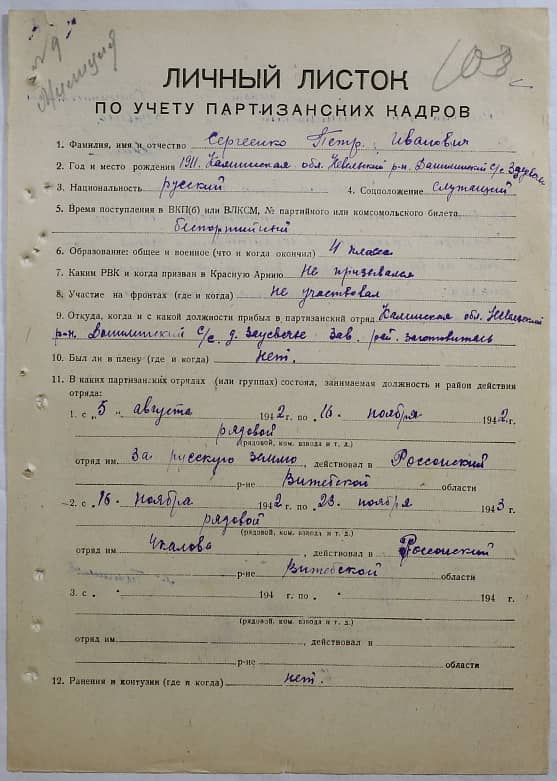 №9
103
ЛИЧНЫЙ ЛИСТОК
ПО УЧЕТУ ПАРТИЗАНСКИХ КАДРОВ
1. Фамилия, имя и отчество Сергеенко Петр Иванович
2. Год и место рождения 1911. Калининская обл. Невельский р-н Данилинский С/с
3. Национальность русский 4. Соцположение служащий
5. Время поступления в ВКП(б) или ВЛКСМ, № партийного или комсомольского билета
беспортийный
6. Образование: общее и военное (что и когда окончил) 4 класса
7. Каким РВК и когда призван в Красную Армию не призевался
8. Участие на фронтах (где и когда) не участвовал
9. Откуда, когда и с какой должности прибыл в партизанский отряд Калинская обл. Невельский
р-н. С/с. д. Заусвечье Зав. рай. заготовитель
10. Был ли в плену (где и когда) нет.
11. В каких партизанских отрядах (или группах) состоял, занимаемая должность и район действия
отряда:
1. с „5 „ августа 1942 г. по „16. ноября 1942 г.
рядовой
(рядовой, ком. взвода и т. д.)
отряд им. За русскую землю, действовал в Россонский
р-не Витебской области
2. с „16. ноября 1942 г. по „23. ноября 1943 г.
рядовой
(рядовой, ком. взвода и т. д.)
отряд им Чкалова, действовал в Россонский
р-не Витебской области
3. с „ „ 194 г. по „ „ 194 г.
(рядовой, ком. взвода и т. д.)
отряд им. , действовал в
р-не области
12. Ранения и контузии (где и когда) нет.